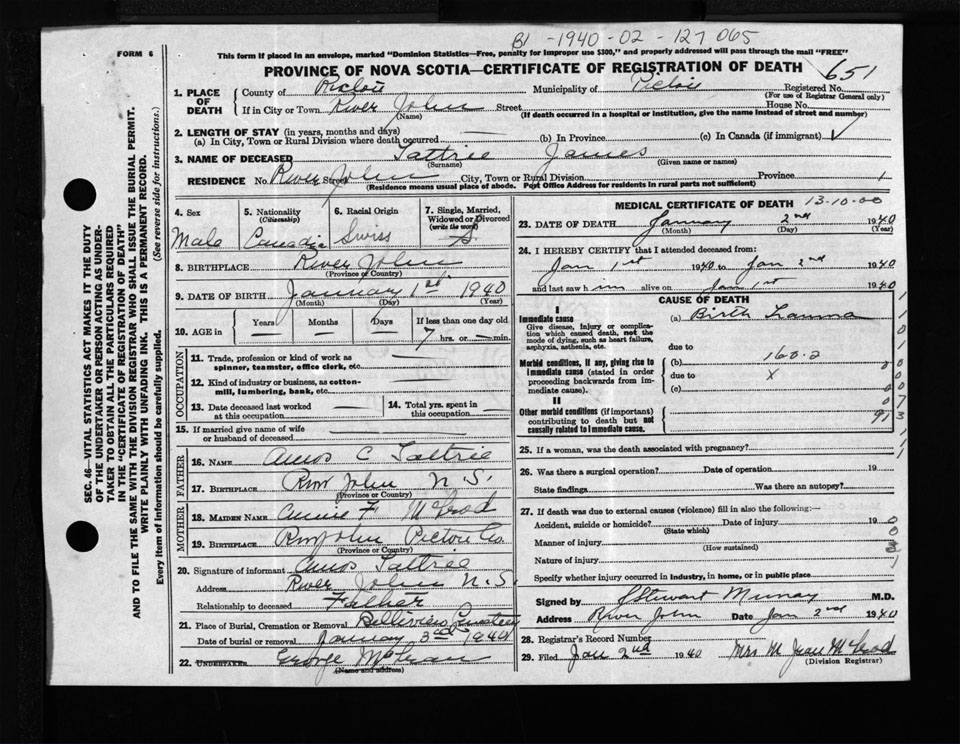 B1-1940-02-127065
FORM 6
This form if placed in an envelope, marked "Dominion Statistics—Free, penalty for improper use $300," and properly addressed will pass through the mail "FREE"
PROVINCE OF NOVA SCOTIA—CERTIFICATE OF REGISTRATION OF DEATH 651
1. PLACE OF DEATH
County of Pictou Municipality of Pictou Registered No.
(For use of Registrar General only)
If in City or Town River John Street House No.
(Name) (If death occurred in a hospital or institution, give the name instead of street and number)
2. LENGTH OF STAY (in years, months and days)
(a) In City, Town or Rural Division where death occurred — (b) In Province (c) In Canada (if immigrant) ✓
3. NAME OF DECEASED Tattrie James
(Surname) (Given name or names)
RESIDENCE No. River John Street City, Town or Rural Division Province 1
(Residence means usual place of abode. Post Office Address for residents in rural parts not sufficient)
4. Sex Male
5. Nationality (Citizenship) Canadian
6. Racial Origin Swiss
7. Single, Married, Widowed or Divorced (write the word) S
8. BIRTHPLACE River John
(Province or Country)
9. DATE OF BIRTH January 1st 1940
(Month) (Day) (Year)
10. AGE in Years Months Days If less than one day old
7 hrs. or — min.
OCCUPATION
11. Trade, profession or kind of work as spinner, teamster, office clerk, etc. —
12. Kind of industry or business, as cotton-mill, lumbering, bank, etc. —
13. Date deceased last worked at this occupation —
14. Total yrs. spent in this occupation —
15. If married give name of wife or husband of deceased —
FATHER
16. NAME Amos C Tattrie
17. BIRTHPLACE River John N.S.
(Province or Country)
MOTHER
18. MAIDEN NAME Annie F McLeod
19. BIRTHPLACE River John Pictou Co.
(Province or Country)
20. Signature of informant Amos Tattrie
Address River John N.S.
Relationship to deceased Father
21. Place of Burial, Cremation or Removal Belleview Cemetery
Date of burial or removal January 3rd 1940
22. UNDERTAKER George McLean
(Name and address)
MEDICAL CERTIFICATE OF DEATH 13-10-00
23. DATE OF DEATH January 2nd 1940
(Month) (Day) (Year)
24. I HEREBY CERTIFY that I attended deceased from:
Jan 1st 1940 to Jan 2nd 1940
and last saw him alive on Jan 1st 1940
CAUSE OF DEATH
I
Immediate cause (a) Birth Trauma
Give disease, injury or complication which caused death, not the mode of dying, such as heart failure, asphyxia, asthenia, etc.
due to
Morbid conditions, if any, giving rise to immediate cause (stated in order proceeding backwards from immediate cause).
(b) 160.2
due to X
(c)
II
Other morbid conditions (if important) contributing to death but not causally related to immediate cause.
25. If a woman, was the death associated with pregnancy?
26. Was there a surgical operation? Date of operation 19
State findings Was there an autopsy?
27. If death was due to external causes (violence) fill in also the following:—
Accident, suicide or homicide? Date of injury 19
(State which)
Manner of injury
(How sustained)
Nature of injury
Specify whether injury occurred in industry, in home, or in public place
Signed by J Stewart Murray M.D.
Address River John Date Jan 2nd 1940
28. Registrar's Record Number
29. Filed Jan 2nd 1940 Mrs M Jean McLeod
(Division Registrar)
SEC. 46—VITAL STATISTICS ACT MAKES IT THE DUTY
OF THE UNDERTAKER OR PERSON ACTING AS UNDER-
TAKER TO OBTAIN ALL THE PARTICULARS REQUIRED
IN THE "CERTIFICATE OF REGISTRATION OF DEATH"
AND TO FILE THE SAME WITH THE DIVISION REGISTRAR WHO SHALL ISSUE THE BURIAL PERMIT.
WRITE PLAINLY WITH UNFADING INK. THIS IS A PERMANENT RECORD.
Every item of information should be carefully supplied. (See reverse side for instructions.)